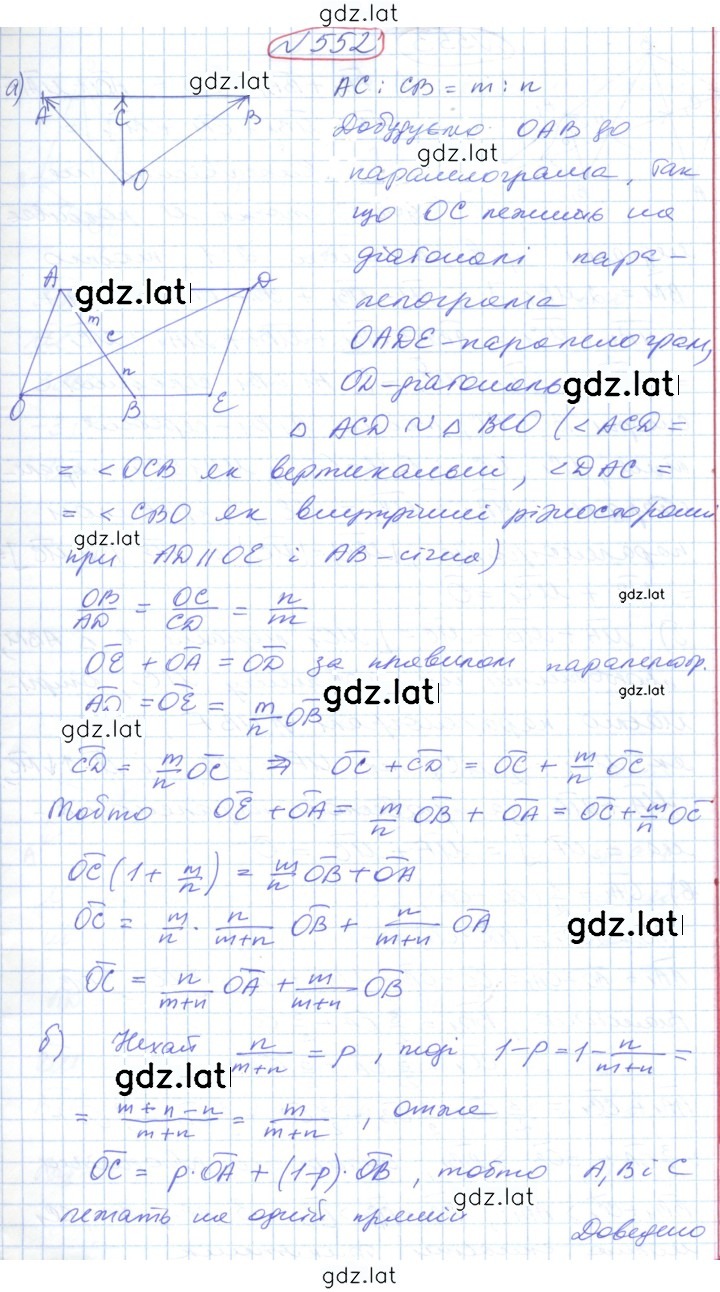 gdz.lat
№ 552
а)
gdz.lat
A C B
O
AC : CB = m : n
Добудуємо OAB до
gdz.lat
паралелограма, так
що OC лежить на
діагоналі пара-
лелограма
OADE - паралелограм,
OD - діагональ
gdz.lat
A D
gdz.lat
m
C
n
O B E
△ ACD ~ △ BCO (∠ACD =
= ∠OCB як вертикальні, ∠DAC =
= ∠CBO як внутрішні різносторонні
gdz.lat
при AD || OE і AB - січна)
OB/AD = OC/CD = n/m
gdz.lat
OE + OA = OD за правилом паралелогр.
AD = OE = m/n OB
gdz.lat
gdz.lat
gdz.lat
CD = m/n OC ⇒ OC + CD = OC + m/n OC
Тобто OE + OA = m/n OB + OA = OC + m/n OC
OC (1 + m/n) = m/n OB + OA
OC = m/n · n/(m+n) OB + n/(m+n) OA
gdz.lat
OC = n/(m+n) OA + m/(m+n) OB
б) Нехай n/(m+n) = p, тоді 1-p = 1 - n/(m+n) =
gdz.lat
= (m+n-n)/(m+n) = m/(m+n), отже
OC = p·OA + (1-p)·OB, тобто A, B і C
gdz.lat
лежать на одній прямій
Доведено
gdz.lat